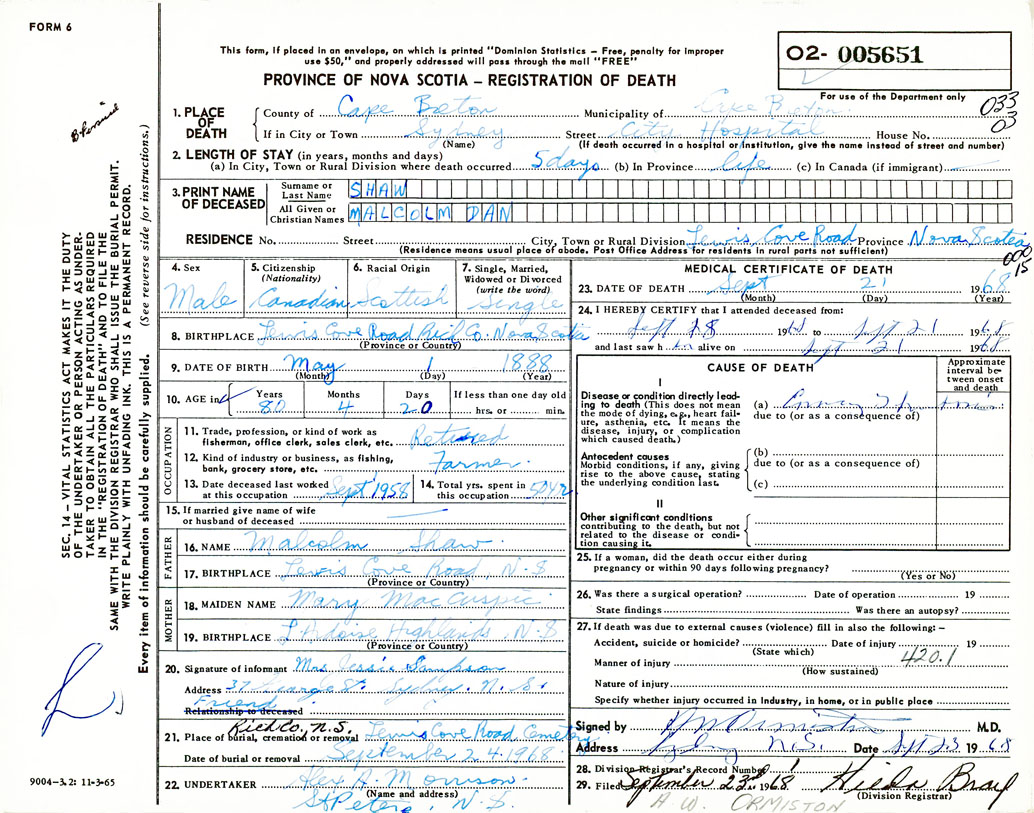 FORM 6
O2- 005651
This form, if placed in an envelope, on which is printed "Dominion Statistics – Free, penalty for improper
use $50," and properly addressed will pass through the mail "FREE"
PROVINCE OF NOVA SCOTIA – REGISTRATION OF DEATH
For use of the Department only
033
03
1. PLACE OF DEATH
County of Cape Breton Municipality of Cape Breton
If in City or Town Sydney Street City Hospital House No.
(Name) (If death occurred in a hospital or institution, give the name instead of street and number)
2. LENGTH OF STAY (in years, months and days)
(a) In City, Town or Rural Division where death occurred 5 days (b) In Province life (c) In Canada (if immigrant)
3. PRINT NAME OF DECEASED
Surname or Last Name SHAW
All Given or Christian Names MALCOLM DAN
RESIDENCE No. Street City, Town or Rural Division Lewis Cove Road Province Nova Scotia
(Residence means usual place of abode. Post Office Address for residents in rural parts not sufficient)
000
15
4. Sex Male
5. Citizenship (Nationality) Canadian
6. Racial Origin Scottish
7. Single, Married, Widowed or Divorced (write the word) Single
8. BIRTHPLACE Lewis Cove Road Rich Co. Nova Scotia
(Province or Country)
9. DATE OF BIRTH May 1 1888
(Month) (Day) (Year)
10. AGE in Years 80 Months 4 Days 20 If less than one day old hrs. or min.
OCCUPATION
11. Trade, profession, or kind of work as
fisherman, office clerk, sales clerk, etc. Retired
12. Kind of industry or business, as fishing,
bank, grocery store, etc. Farmer
13. Date deceased last worked
at this occupation Sept 1958
14. Total yrs. spent in
this occupation 50
15. If married give name of wife
or husband of deceased
FATHER
16. NAME Malcolm Shaw
17. BIRTHPLACE Lewis Cove Road, N.S
(Province or Country)
MOTHER
18. MAIDEN NAME Mary MacCuspic
19. BIRTHPLACE L'Ardoise Highlands N.S
(Province or Country)
20. Signature of informant Mrs Jessie
Address 37 George St. Sydney, N.S.
Friend
Relationship to deceased
Rich Co., N.S.
21. Place of burial, cremation or removal Lewis Cove Road Cemetery
Date of burial or removal September 24, 1968
22. UNDERTAKER Alex A. Morrison
(Name and address)
St Peters, N.S.
MEDICAL CERTIFICATE OF DEATH
23. DATE OF DEATH Sept 21 1968
(Month) (Day) (Year)
24. I HEREBY CERTIFY that I attended deceased from:
Sept 18 1968 to Sept 21 1968
and last saw him alive on Sept 21 1968
CAUSE OF DEATH
Approximate interval between onset and death
I
Disease or condition directly leading to death (This does not mean the mode of dying, e.g., heart failure, asthenia, etc. It means the disease, injury, or complication which caused death.)
(a)
due to (or as a consequence of)
Antecedent causes
Morbid conditions, if any, giving rise to the above cause, stating the underlying condition last.
(b)
due to (or as a consequence of)
(c)
II
Other significant conditions
contributing to the death, but not related to the disease or condition causing it.
25. If a woman, did the death occur either during
pregnancy or within 90 days following pregnancy?
(Yes or No)
26. Was there a surgical operation? Date of operation 19
State findings Was there an autopsy?
27. If death was due to external causes (violence) fill in also the following: –
Accident, suicide or homicide? Date of injury 19
(State which)
Manner of injury 420.1
(How sustained)
Nature of injury
Specify whether injury occurred in Industry, in home, or in public place
Signed by Ormiston M.D.
Address Sydney N.S. Date Sept 23 1968
28. Division Registrar's Record Number
29. Filed September 23rd 1968 Hilda
(Division Registrar)
A.W. ORMISTON
SEC. 14 – VITAL STATISTICS ACT MAKES IT THE DUTY
OF THE UNDERTAKER OR PERSON ACTING AS UNDER-
TAKER TO OBTAIN ALL THE PARTICULARS REQUIRED
IN THE "REGISTRATION OF DEATH" AND TO FILE THE
SAME WITH THE DIVISION REGISTRAR WHO SHALL ISSUE THE BURIAL PERMIT.
WRITE PLAINLY WITH UNFADING INK. THIS IS A PERMANENT RECORD.
Every item of information should be carefully supplied. (See reverse side for instructions.)
9004-3.2: 11-3-65